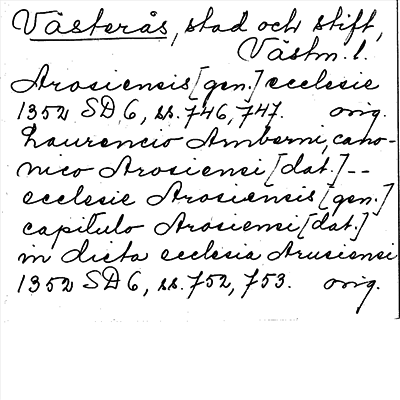 Västerås, stad och stift,
Västm. l.
Arosiensis [gen.] ecclesie
1352 SD 6, ss. 746, 747. orig.
Laurencio Amberni, cano-
nico Arosiensi [dat.] --
ecclesie Arosiensis [gen.]
capitulo Arosiensi [dat.]
in dicta ecclesia Arusiensi
1352 SD 6, ss. 752, 753. orig.